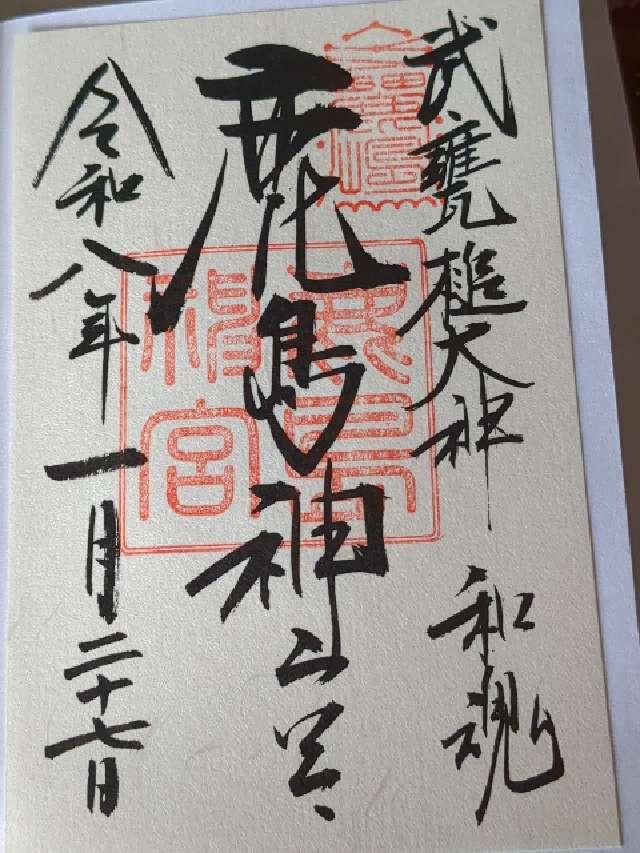 武甕槌大神 和魂
鹿島神宮
鹿島神宮
令和八年 一月二十七日